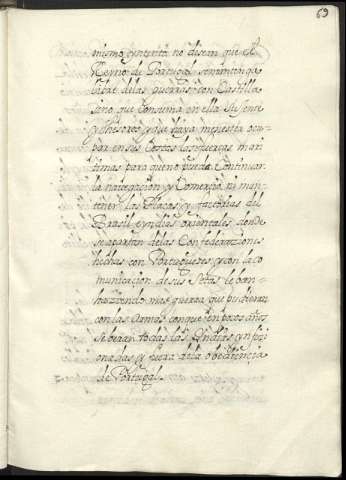 69
mismo yntento no desean que el
Reyno de Portugal se mantenga
libre de las guerras con Castilla
sino que consuma en ella su gente
y thesoros y que haya menester ocu
par en sus Costas las fuerças mari
timas para que no pueda Continuar
la navegacion y Comercio ni man
tener las Plaças y fatorias del
Brasil e yndias orientales donde
se apartan de las Confederaziones
hechas con Portugueses y con la co
municacion de sus Setas le ban
haziendo mas guerra que pudieran
con las Armas con que en pocos años
se beran todas las yndias
y fuera de la obediencia
de Portugal.